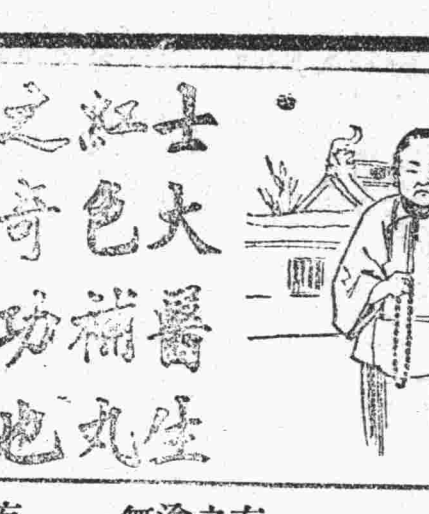 士大醫生
紅色補丸
之奇功也